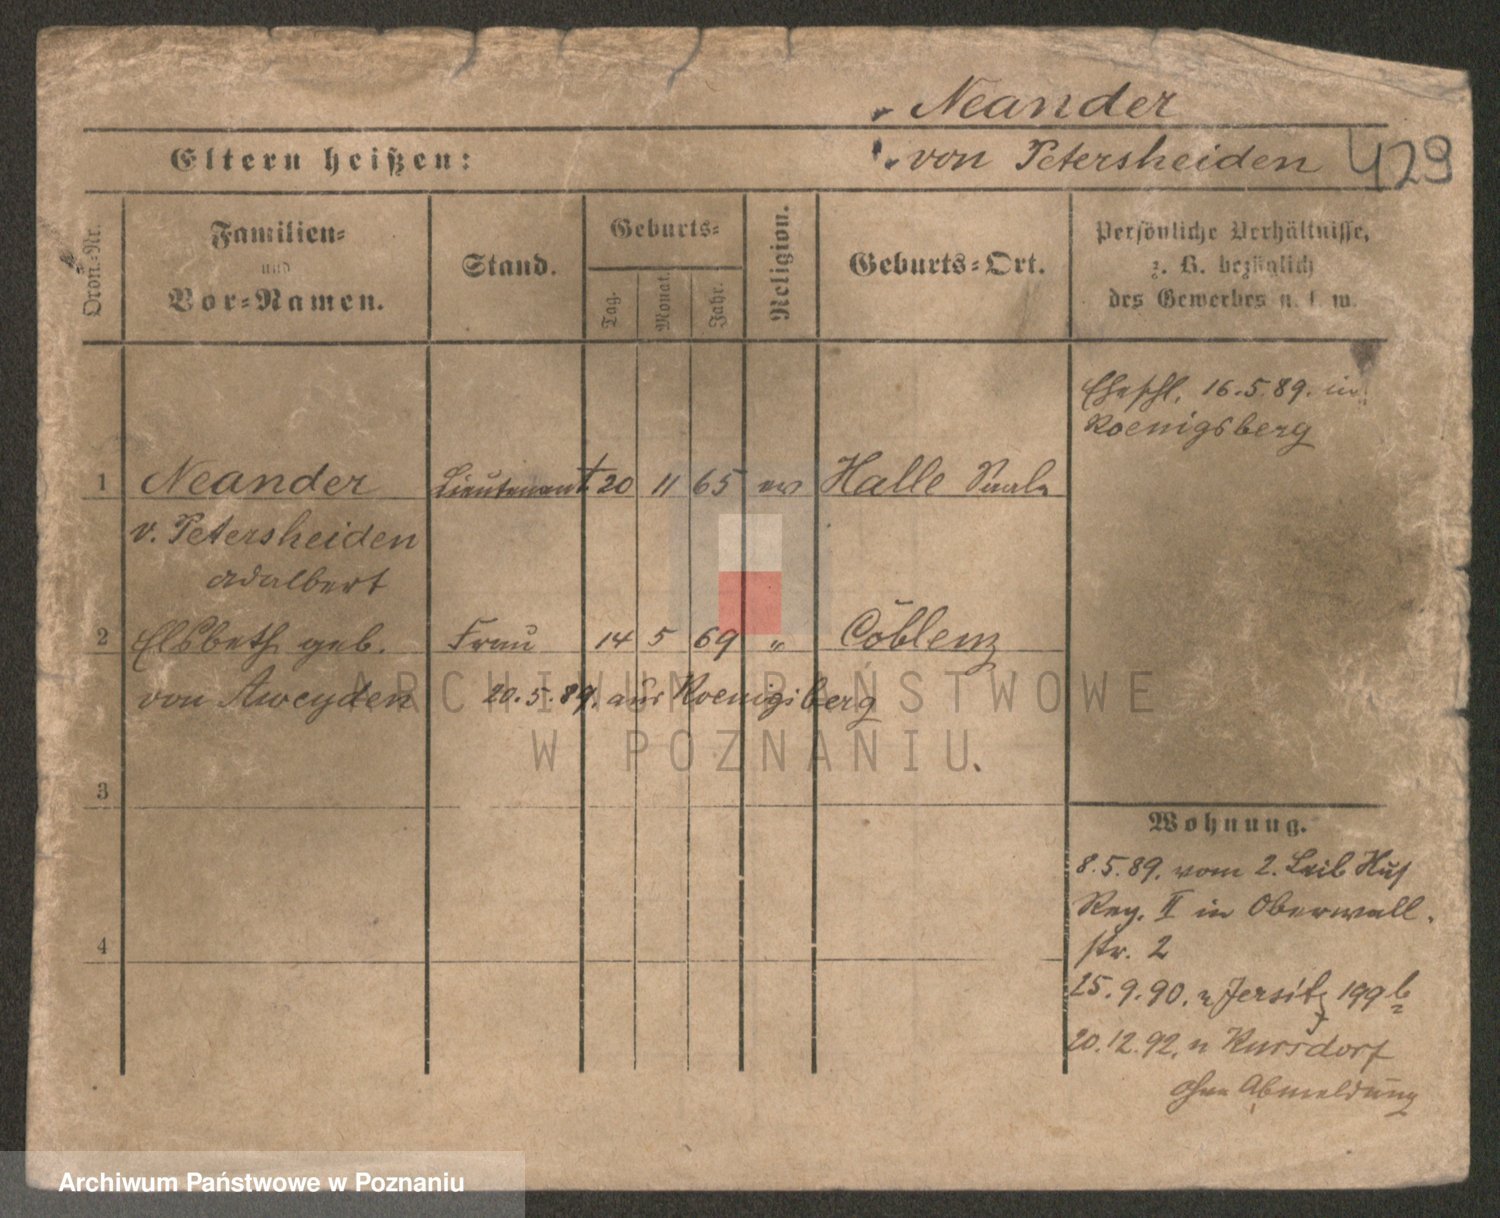 Neander
Eltern heißen:
von Petersheiden 429
Ordn.-Nr.
Familien-
und
Vor-Namen.
Stand.
Geburts-
Tag.
Monat.
Jahr.
Religion.
Geburts-Ort.
Persönliche Verhältnisse,
z. B. bezüglich
des Gewerbes u. s. w.
Eheschl. 16.5.89. in
Koenigsberg
1 Neander Lieutenant 20 11 65 ev Halle Saale
v. Petersheiden
Adalbert
2 Elsbeth geb. Frau 14 5 69 " Coblenz
von Aweyden 20.5.89. aus Koenigsberg
ARCHIWUM PAŃSTWOWE
W POZNANIU
3
Wohnung.
8.5.89. vom 2. Leib Hus
Reg. II in Oberwall-
str. 2
4
25.9.90. n Jersitz 199 b
20.12.92. n Kursdorf
ohne Abmeldung
Archiwum Państwowe w Poznaniu